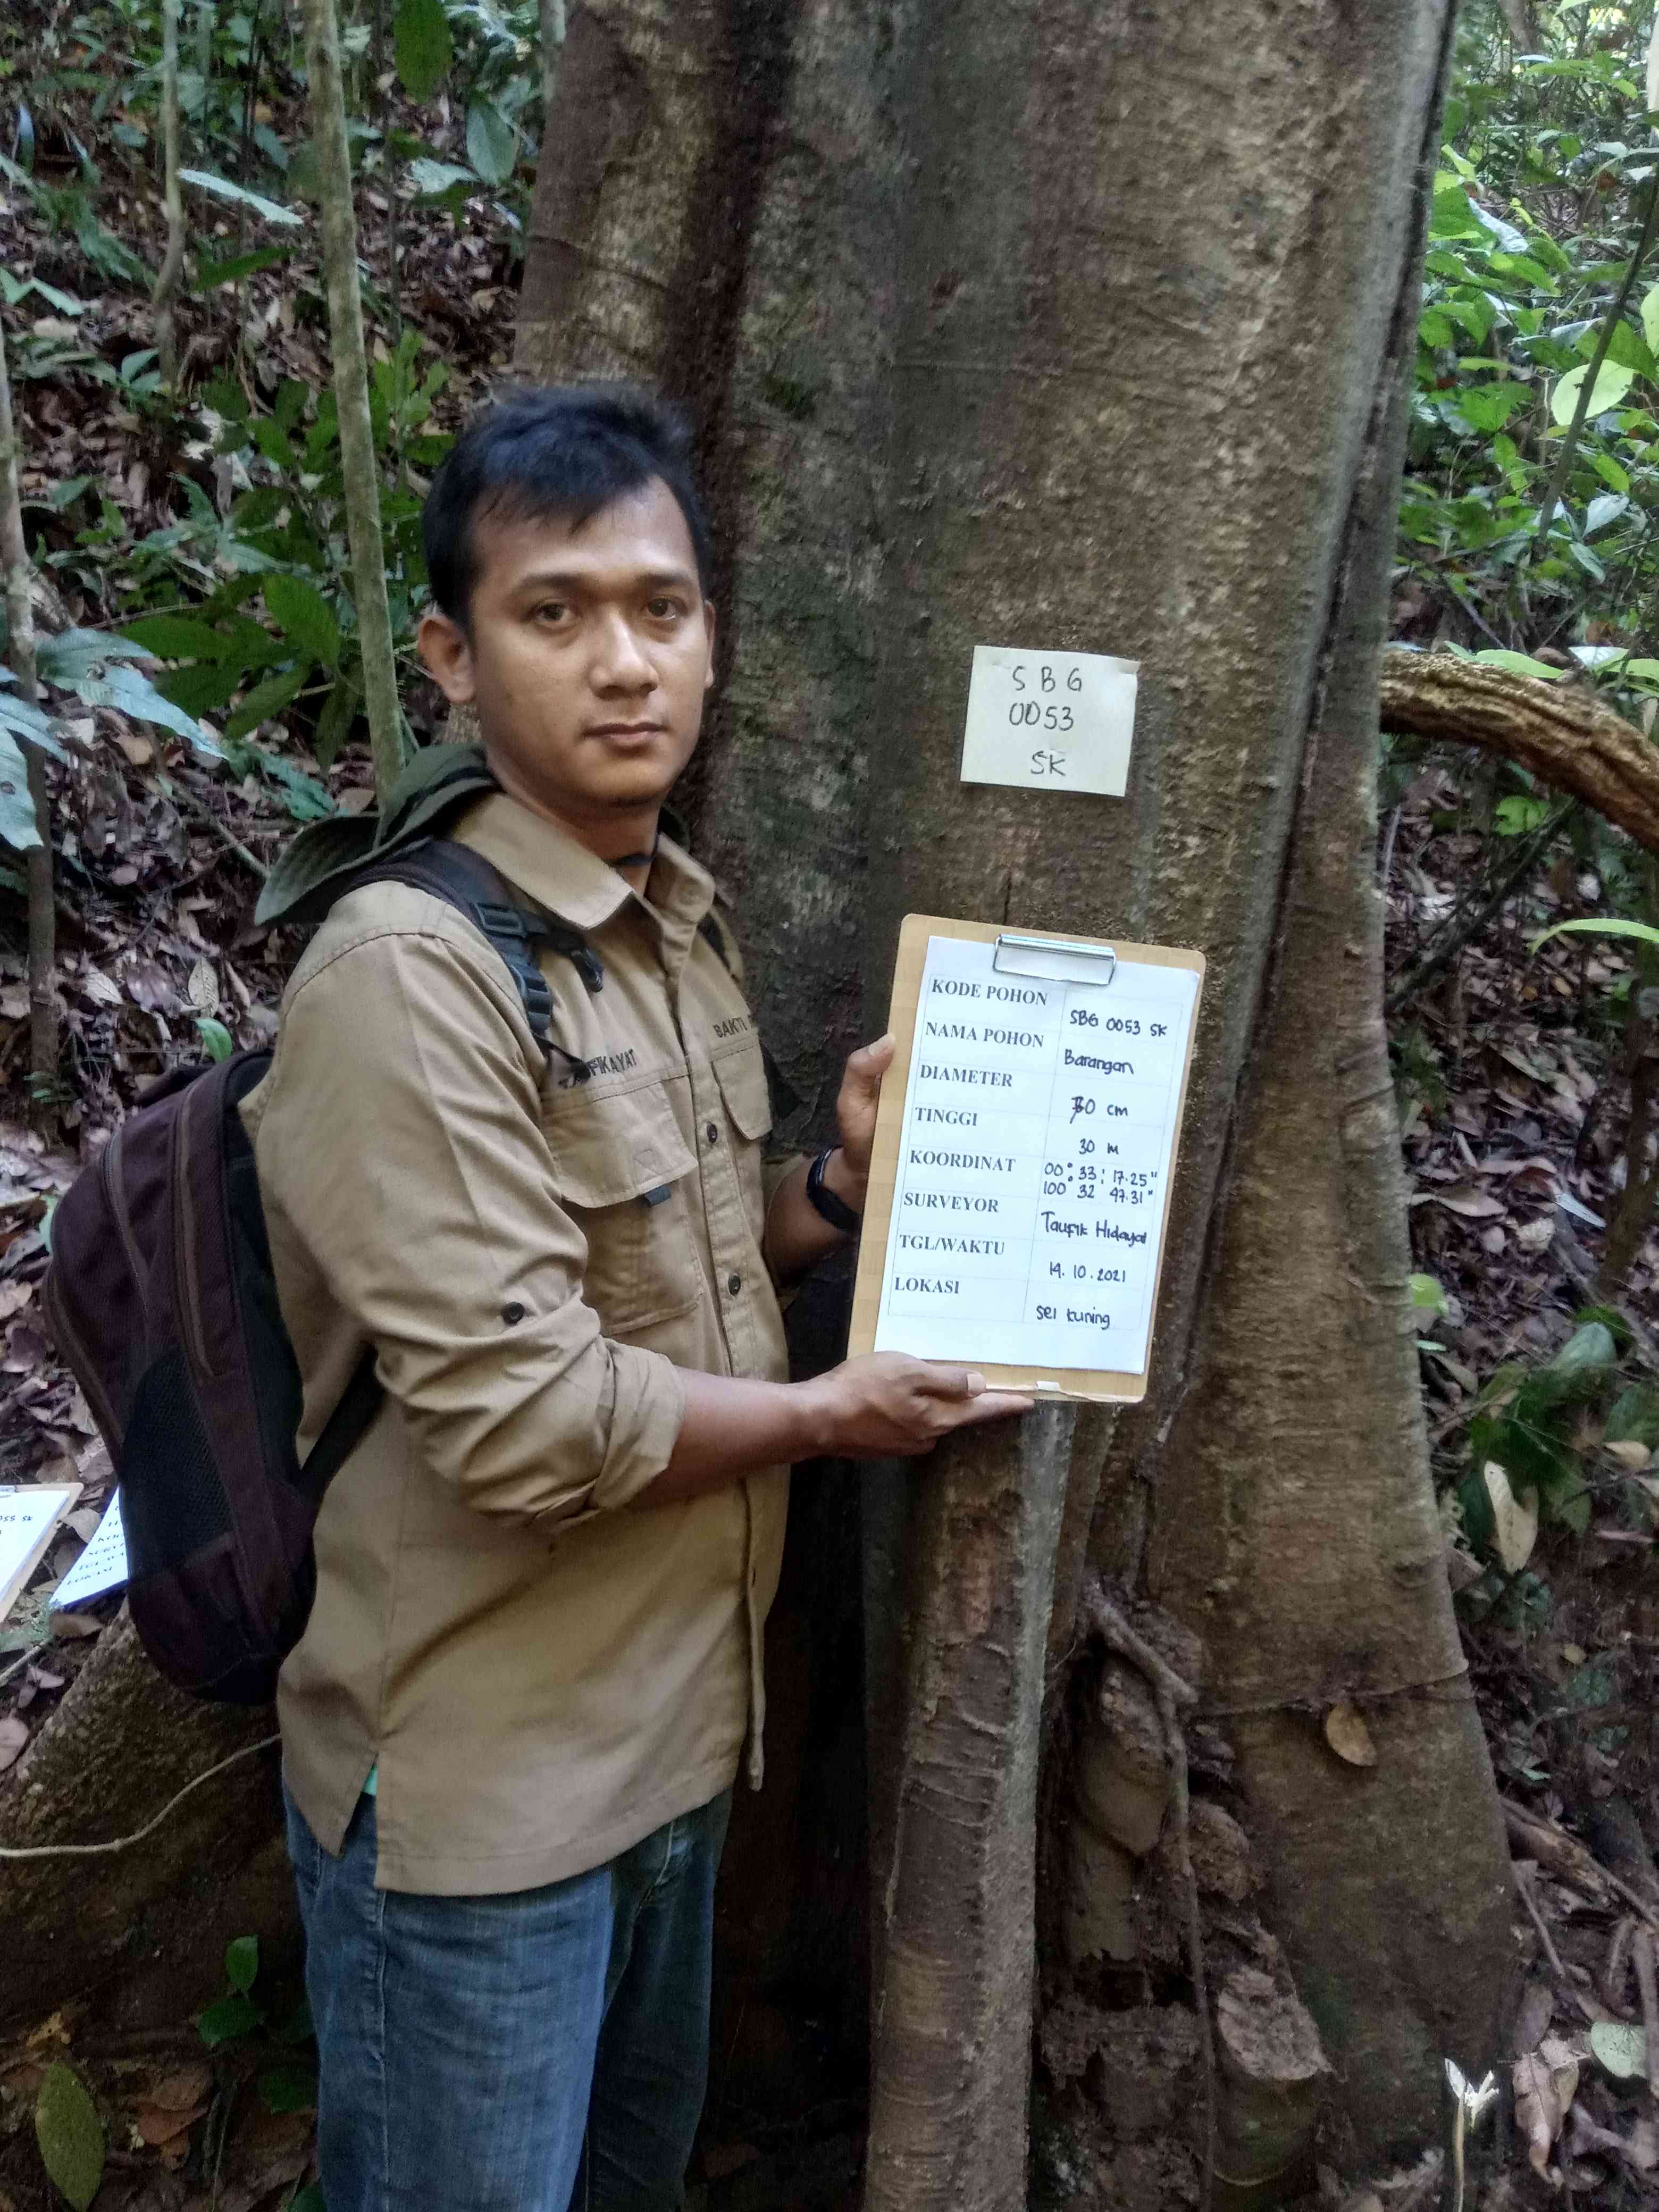 SBG
0053
SK
KODE POHON SBG 0053 SK
NAMA POHON Barangan
DIAMETER 70 cm
TINGGI 30 m
KOORDINAT 00° 33' 17.25"
100° 32 47.31"
SURVEYOR Taufik Hidayat
TGL/WAKTU 14.10.2021
LOKASI Sei Kuning
BAKTI
055 SK
LOKASI